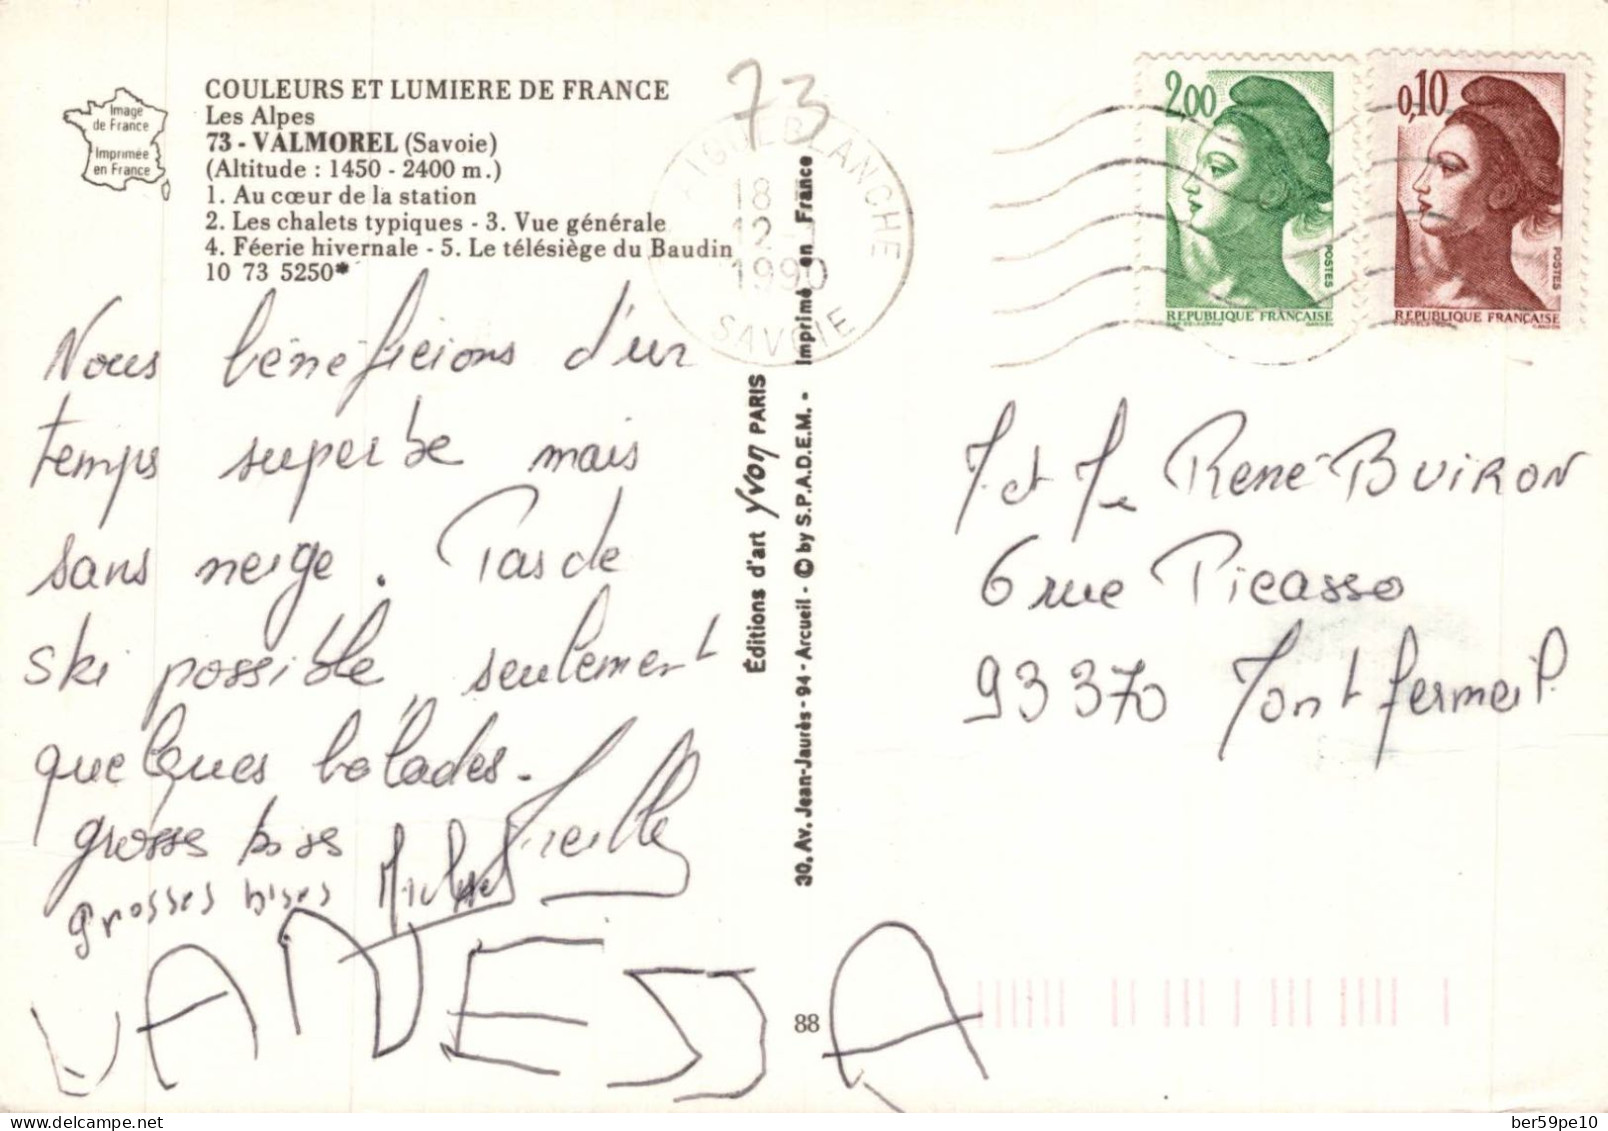 Image
de France
Imprimée
en France
COULEURS ET LUMIERE DE FRANCE
Les Alpes
73 - VALMOREL (Savoie)
(Altitude : 1450 - 2400 m.)
1. Au cœur de la station
2. Les chalets typiques - 3. Vue générale
4. Féerie hivernale - 5. Le télésiège du Baudin
10 73 5250*
73
AIGUEBLANCHE
18
12
1990
SAVOIE
2.00
POSTES
REPUBLIQUE FRANÇAISE
0,10
POSTES
REPUBLIQUE FRANÇAISE
Nous bénéficions d'un
temps superbe mais
sans neige. Pas de
ski possible, seulement
quelques balades.
grosses bises Mireille
grosses bises Michel
VANESSA
Éditions d'art Yvon PARIS
30, Av. Jean-Jaurès - 94 - Arcueil - © by S.P.A.D.E.M. - Imprimé en France
M. et Me René BUIRON
6 rue Picasso
93370 Montfermeil.
88
delcampe.net
ber59pe10